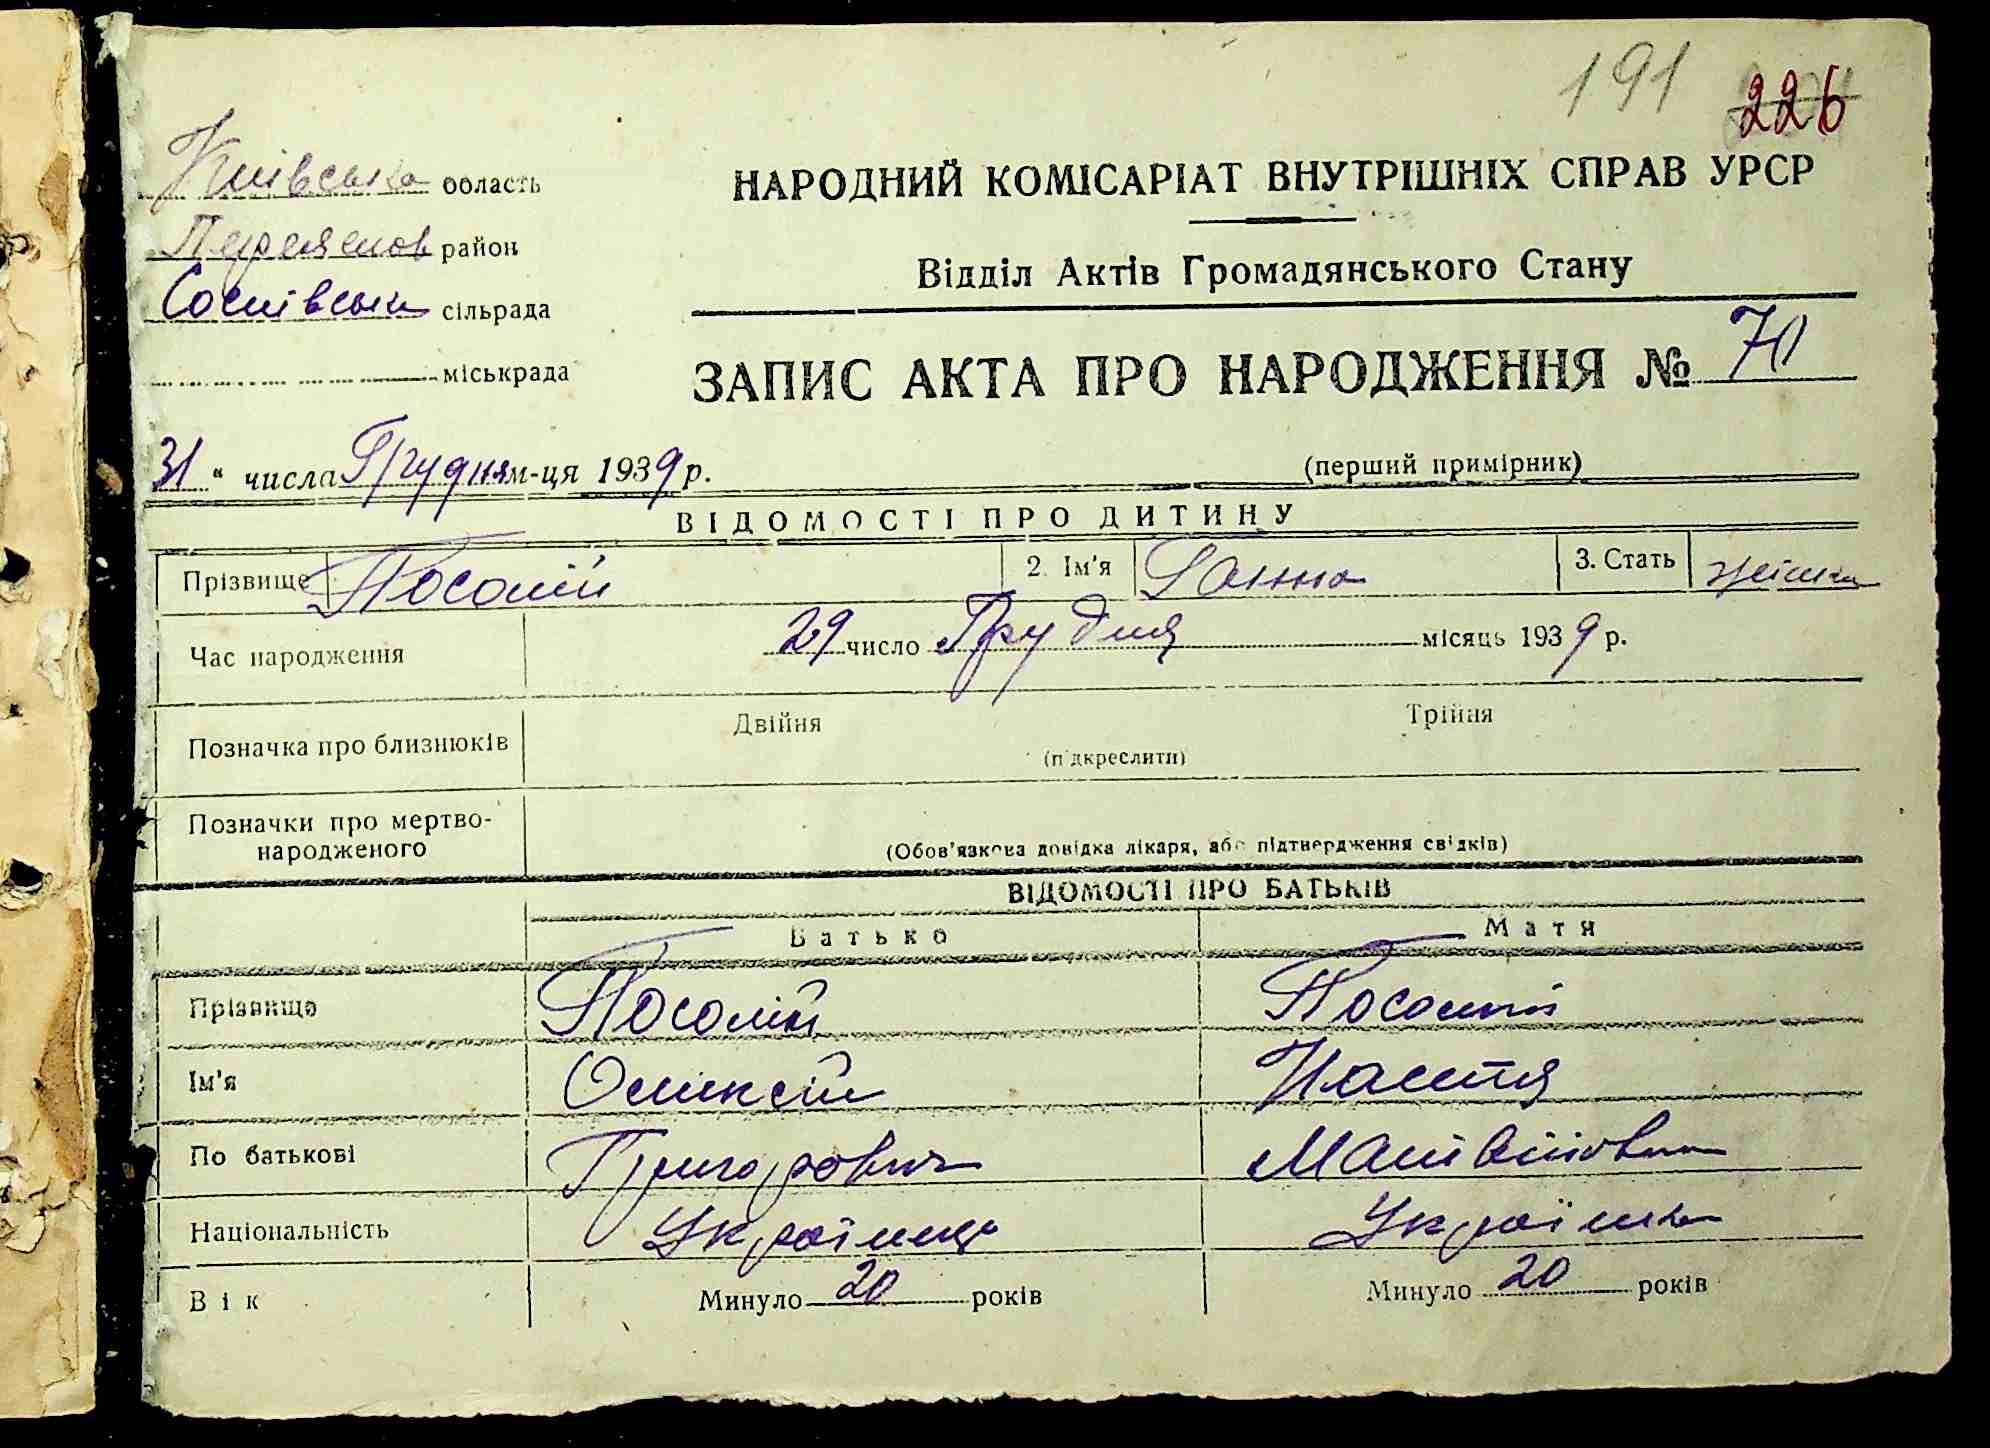 191
226
Київська область
Переяслов район
Соснівська сільрада
міськрада
НАРОДНИЙ КОМІСАРІАТ ВНУТРІШНІХ СПРАВ УРСР
Відділ Актів Громадянського Стану
ЗАПИС АКТА ПРО НАРОДЖЕННЯ № 70
31 " числа Грудня м-ця 1939 р.
(перший примірник)
ВІДОМОСТІ ПРО ДИТИНУ
Прізвище 2. Ім'я Ганна 3. Стать
Час народження 29 число Грудня місяць 1939 р.
Позначка про близнюків Двійня Трійня
(підкреслити)
Позначки про мертво-
народженого
(Обов'язкова довідка лікаря, або підтвердження свідків)
ВІДОМОСТІ ПРО БАТЬКІВ
Батько Мати
Прізвище
Ім'я Олексій Настя
По батькові Григорович Матвіївна
Національність Українець Українка
Вік Минуло 20 років Минуло 20 років